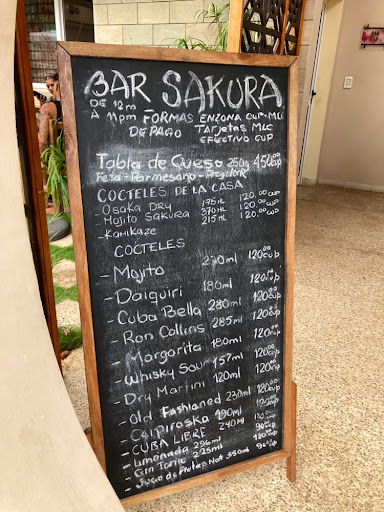 BAR SAKURA
DE 12m FORMAS ENZONA CUP-MLC
A 11pm DE PAGO Tarjetas MLC
EFECTIVO CUP
Tabla de Queso 250g 450.00 CUP
Feta - Parmesano - Provolone
COCTELES DE LA CASA
- Osaka Dry 175 mL 120.00 CUP
- Mojito Sakura 270 ML 120.00 CUP
- Kamikaze 215 mL 120.00 CUP
COCTELES
- Mojito 230 ml 120.00 CUP
- Daiquiri 180ml 120.00 CUP
- Cuba Bella 280ml 120.00 CUP
- Ron Collins 285ml 120.00 CUP
- Margarita 180ml 120.00 CUP
- Whisky Sour 157ml 120.00 CUP
- Dry Martini 120ml 120.00 CUP
- Old Fashioned 230ml 120.00 CUP
- Caipiroska 190ml 120.00 CUP
- CUBA LIBRE 240 Ml 120.00
- Limonada 296ml 90.00 CUP
- Gin Tonic 225ml 120.00
- Jugo de Frutas Nat. 350ml 90.00 CUP